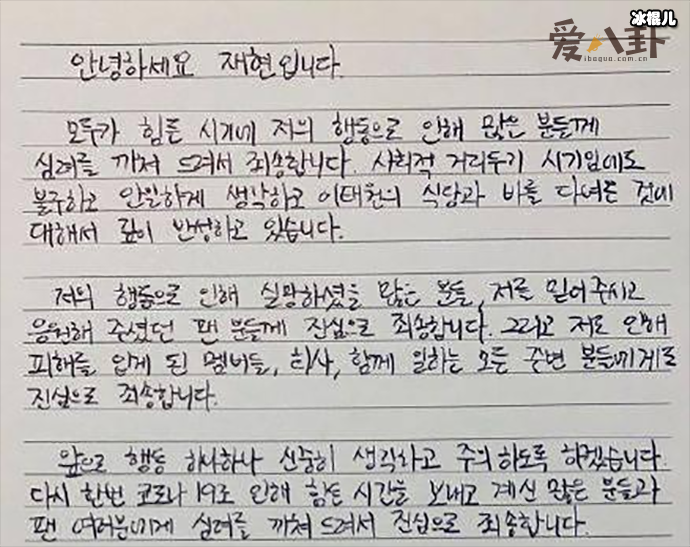 冰棍儿
爱八卦
ibagua.com.cn
안녕하세요 재현입니다.
모두가 힘든 시기에 저의 행동으로 인해 많은 분들께
심려를 끼쳐 드려서 죄송합니다. 사회적 거리두기 시기임에도
불구하고 안일하게 생각하고 이태원의 식당과 바를 다녀온 것에
대해서 깊이 반성하고 있습니다.
저의 행동으로 인해 실망하셨을 많은 분들, 저를 믿어주시고
응원해 주셨던 팬 분들께 진심으로 죄송합니다. 그리고 저로 인해
피해를 입게 된 멤버들, 회사, 함께 일하는 모든 주변 분들에게도
진심으로 죄송합니다.
앞으로 행동 하나하나 신중히 생각하고 주의 하도록 하겠습니다.
다시 한번 코로나 19로 인해 힘든 시간을 보내고 계신 많은 분들과
팬 여러분에게 심려를 끼쳐 드려서 진심으로 죄송합니다.